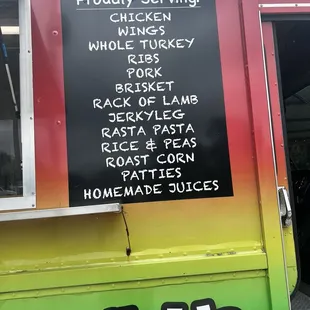 Proudly Serving!
CHICKEN
WINGS
WHOLE TURKEY
RIBS
PORK
BRISKET
RACK OF LAMB
JERKYLEG
RASTA PASTA
RICE & PEAS
ROAST CORN
PATTIES
HOMEMADE JUICES